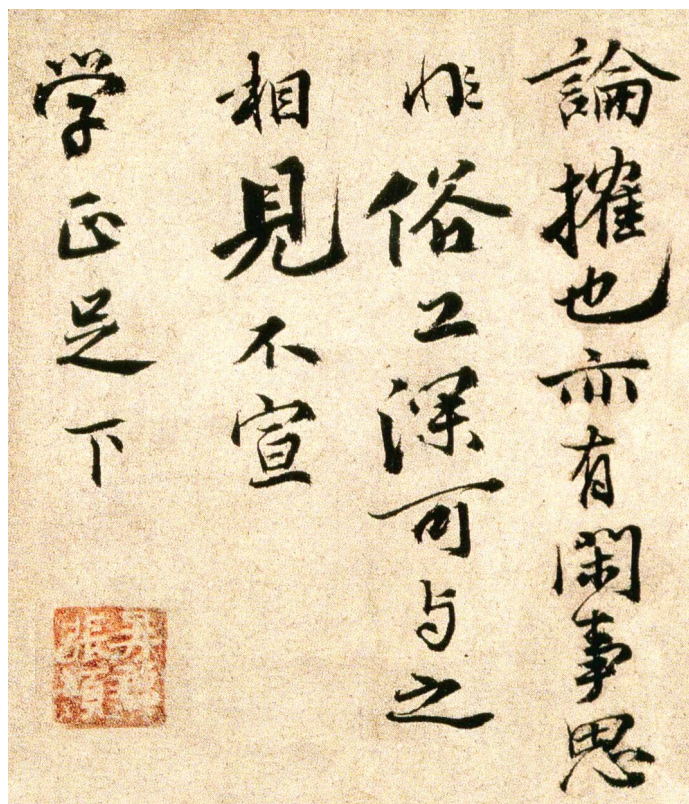 論搉也亦有閑事思
非俗工深可与之
相見不宣
学正足下